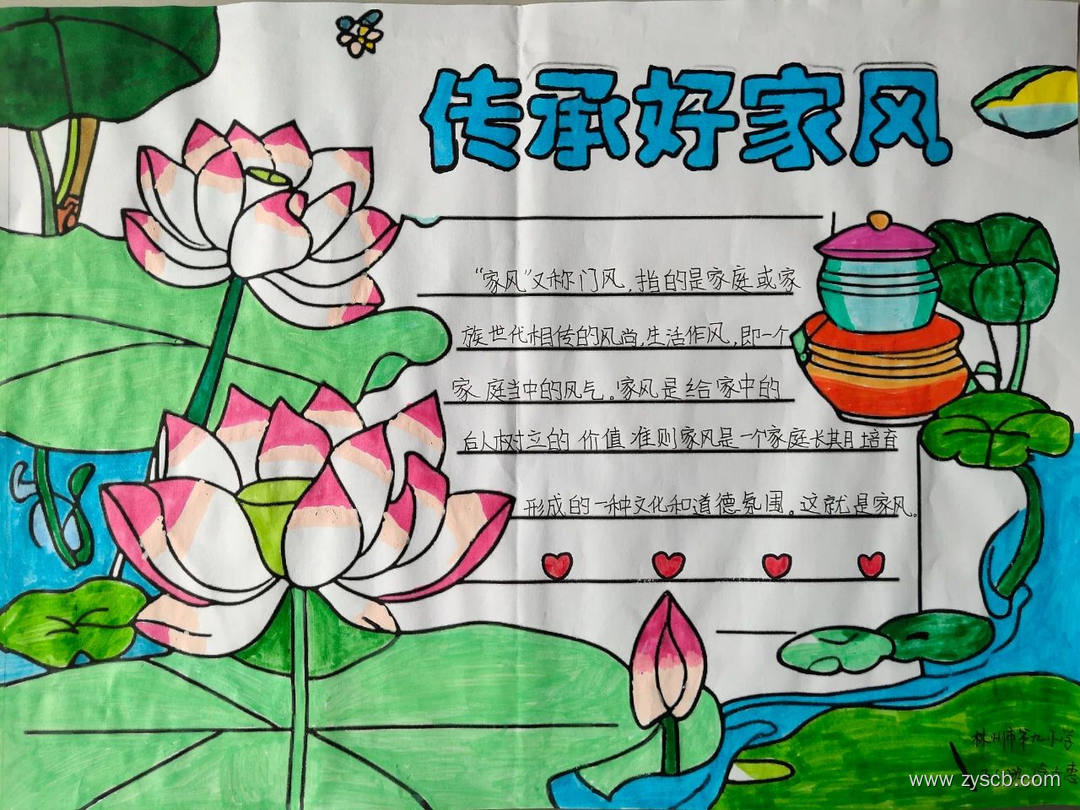 传承好家风
“家风”又称门风，指的是家庭或家
族世代相传的风尚，生活作风，即一个
家庭当中的风气。家风是给家中的
后人树立的价值准则家风是一个家庭长其月培育
形成的一种文化和道德氛围。这就是家风。
林州市第九小学
www.zyscb.com